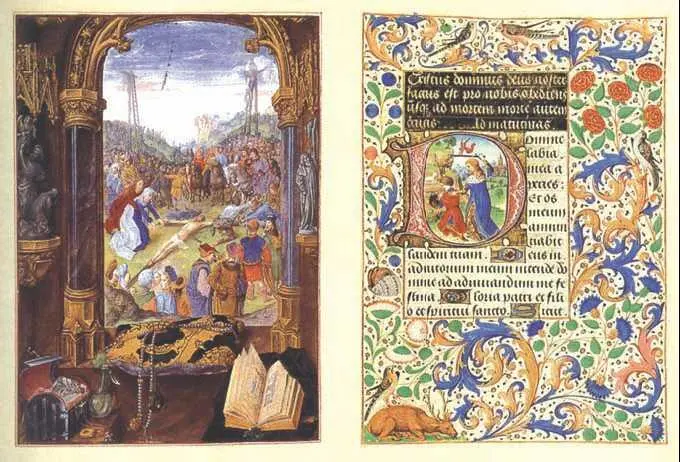 Cristus dominus deus noster
factus est pro nobis obediens
usq ad mortem morte autem
crucis. Ad matutinas.
Domine
labia
mea a
peries:
Et os
meum
annun
tiabit
laudem tuam. Deus in
adiutorium meum intende do
mine ad adiuuandum me fe
stina. Gloria patri et fili
o et spiritui sancto. Sicut